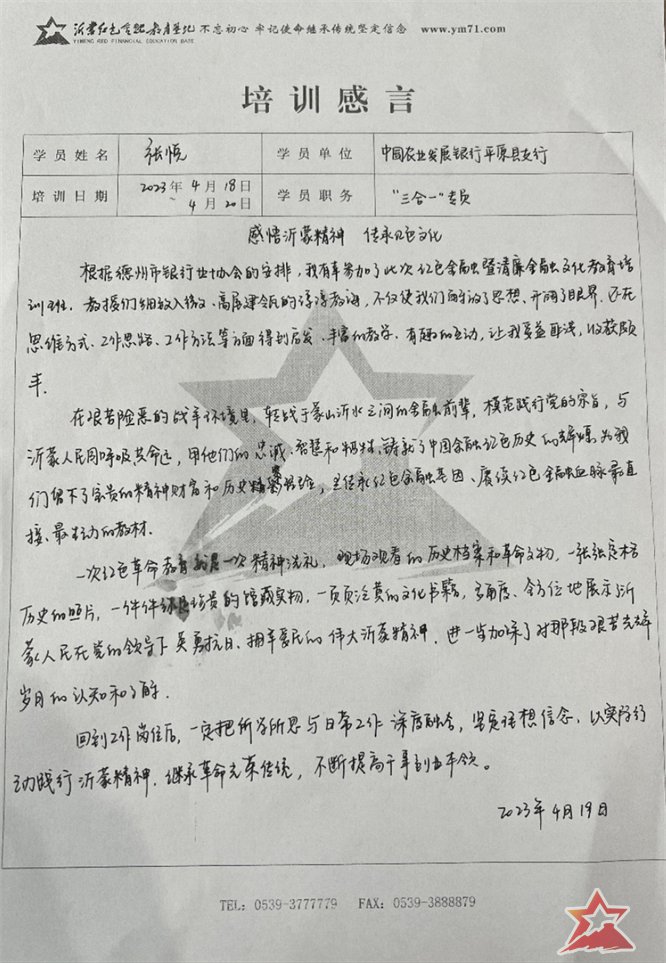 沂蒙红色金融教育基地 不忘初心 牢记使命继承传统坚定信念 www.ym71.com
YIMENG RED FINANCIAL EDUCATION BASE
培训感言
学员姓名 张悦 学员单位 中国农业发展银行平原县支行
培训日期 2023年4月18日 ~ 4月20日 学员职务 "三合一"专员
感悟沂蒙精神 传承红色文化
根据德州市银行业协会的安排，我有幸参加了此次红色金融暨清廉金融文化教育培
训班。教授们细致入微、高屋建瓴的谆谆教诲，不仅使我们解放了思想、开阔了眼界，还在
思维方式、工作思路、工作方法等方面得到启发，丰富的教学、有趣的互动，让我受益匪浅，收获颇
丰。
在艰苦险恶的战争环境里，转战于蒙山沂水之间的金融前辈，模范践行党的宗旨，与
沂蒙人民同呼吸共命运，用他们的忠诚、智慧和牺牲，铸就了中国金融红色历史的辉煌，为我
们留下了宝贵的精神财富和历史经验，是传承红色金融基因、赓续红色金融血脉最直
接、最生动的教材。
一次红色革命教育就是一次精神洗礼，现场观看的历史档案和革命文物，一张张
历史的照片，一件件珍贵的馆藏实物，一页页泛黄的文化书籍，多角度、全方位地展示沂
蒙人民在党的领导下英勇抗日、拥军爱民的伟大沂蒙精神，进一步加深了对那段艰苦光辉
岁月的认知和了解。
回到工作岗位后，一定把所学所思与日常工作深度融合，坚定理想信念，以实际行
动践行沂蒙精神，继承革命光荣传统，不断提高干事创业本领。
2023年4月19日
TEL: 0539-3777779 FAX: 0539-3888879